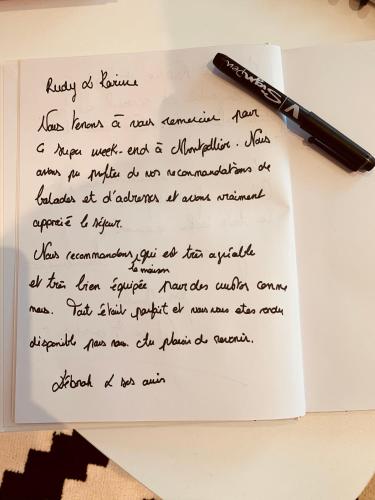 Rudy & Karine
Nous tenons à vous remercier pour
ce super week-end à Montpellier. Nous
avons pu profiter de vos recommandations de
balades et d'adresses et avons vraiment
apprécié le séjour.
Nous recommandons, qui est très agréable
la maison
et très bien équipée pour des comme
nous. Tout était parfait et vous vous etes rendu
disponible pour nous. Au plaisir de revenir.
Déborah & ses amis
V Sign Pen